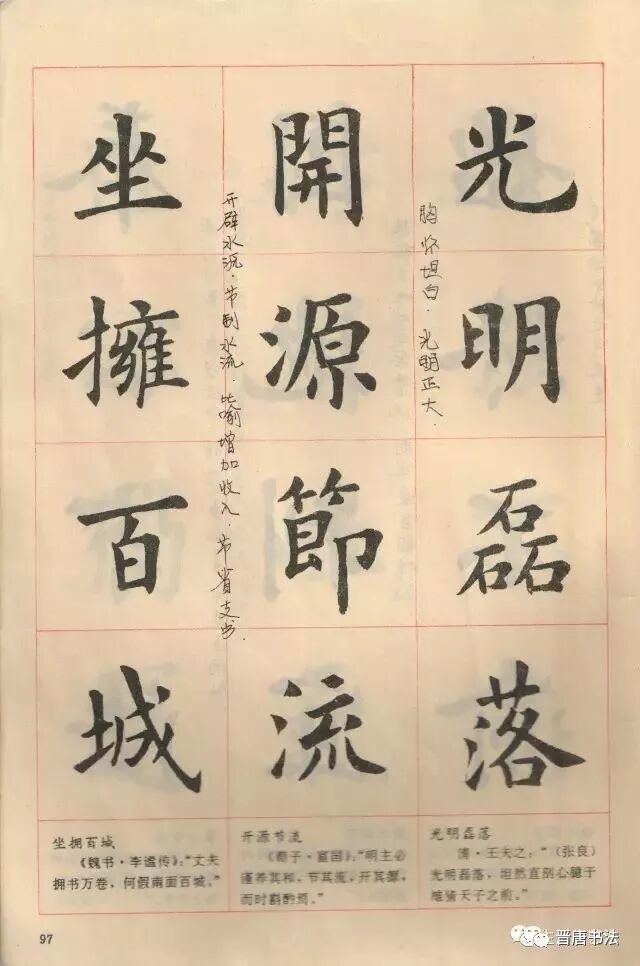 光明磊落
胸怀坦白.光明正大.
開源節流
开辟水源.节制水流.比喻增加收入.节省支出.
坐擁百城
坐拥百城
《魏书·李谧传》:“丈夫
拥书万卷,何假南面百城。”
开源节流
《荀子·富国》:“明主必
谨养其和,节其流,开其源,
而时斟酌焉。”
光明磊落
清·王夫之:“(张良)
光明磊落,坦然直剖心臆于
雄猜天子之前。”
97
晋唐书法